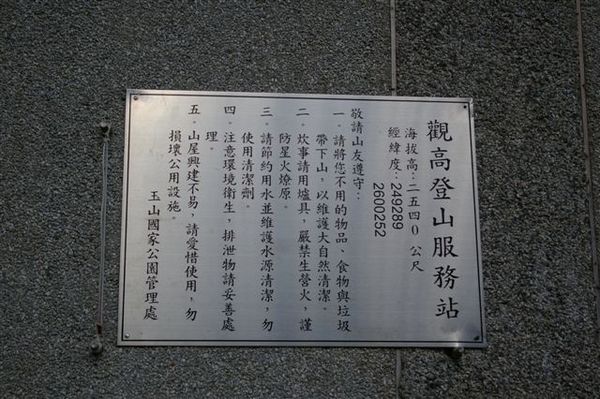 觀高登山服務站
海拔高:二五四〇公尺
經緯度:249289
2600252
敬請山友遵守:
一。請將您不用的物品、食物與垃圾
帶下山,以維護大自然清潔。
二。炊事請用爐具,嚴禁生營火,謹
防星火燎原。
三。請節約用水並維護水源清潔,勿
使用清潔劑。
四。注意環境衛生,排泄物請妥善處
理。
五。山屋興建不易,請愛惜使用,勿
損壞公用設施。
玉山國家公園管理處